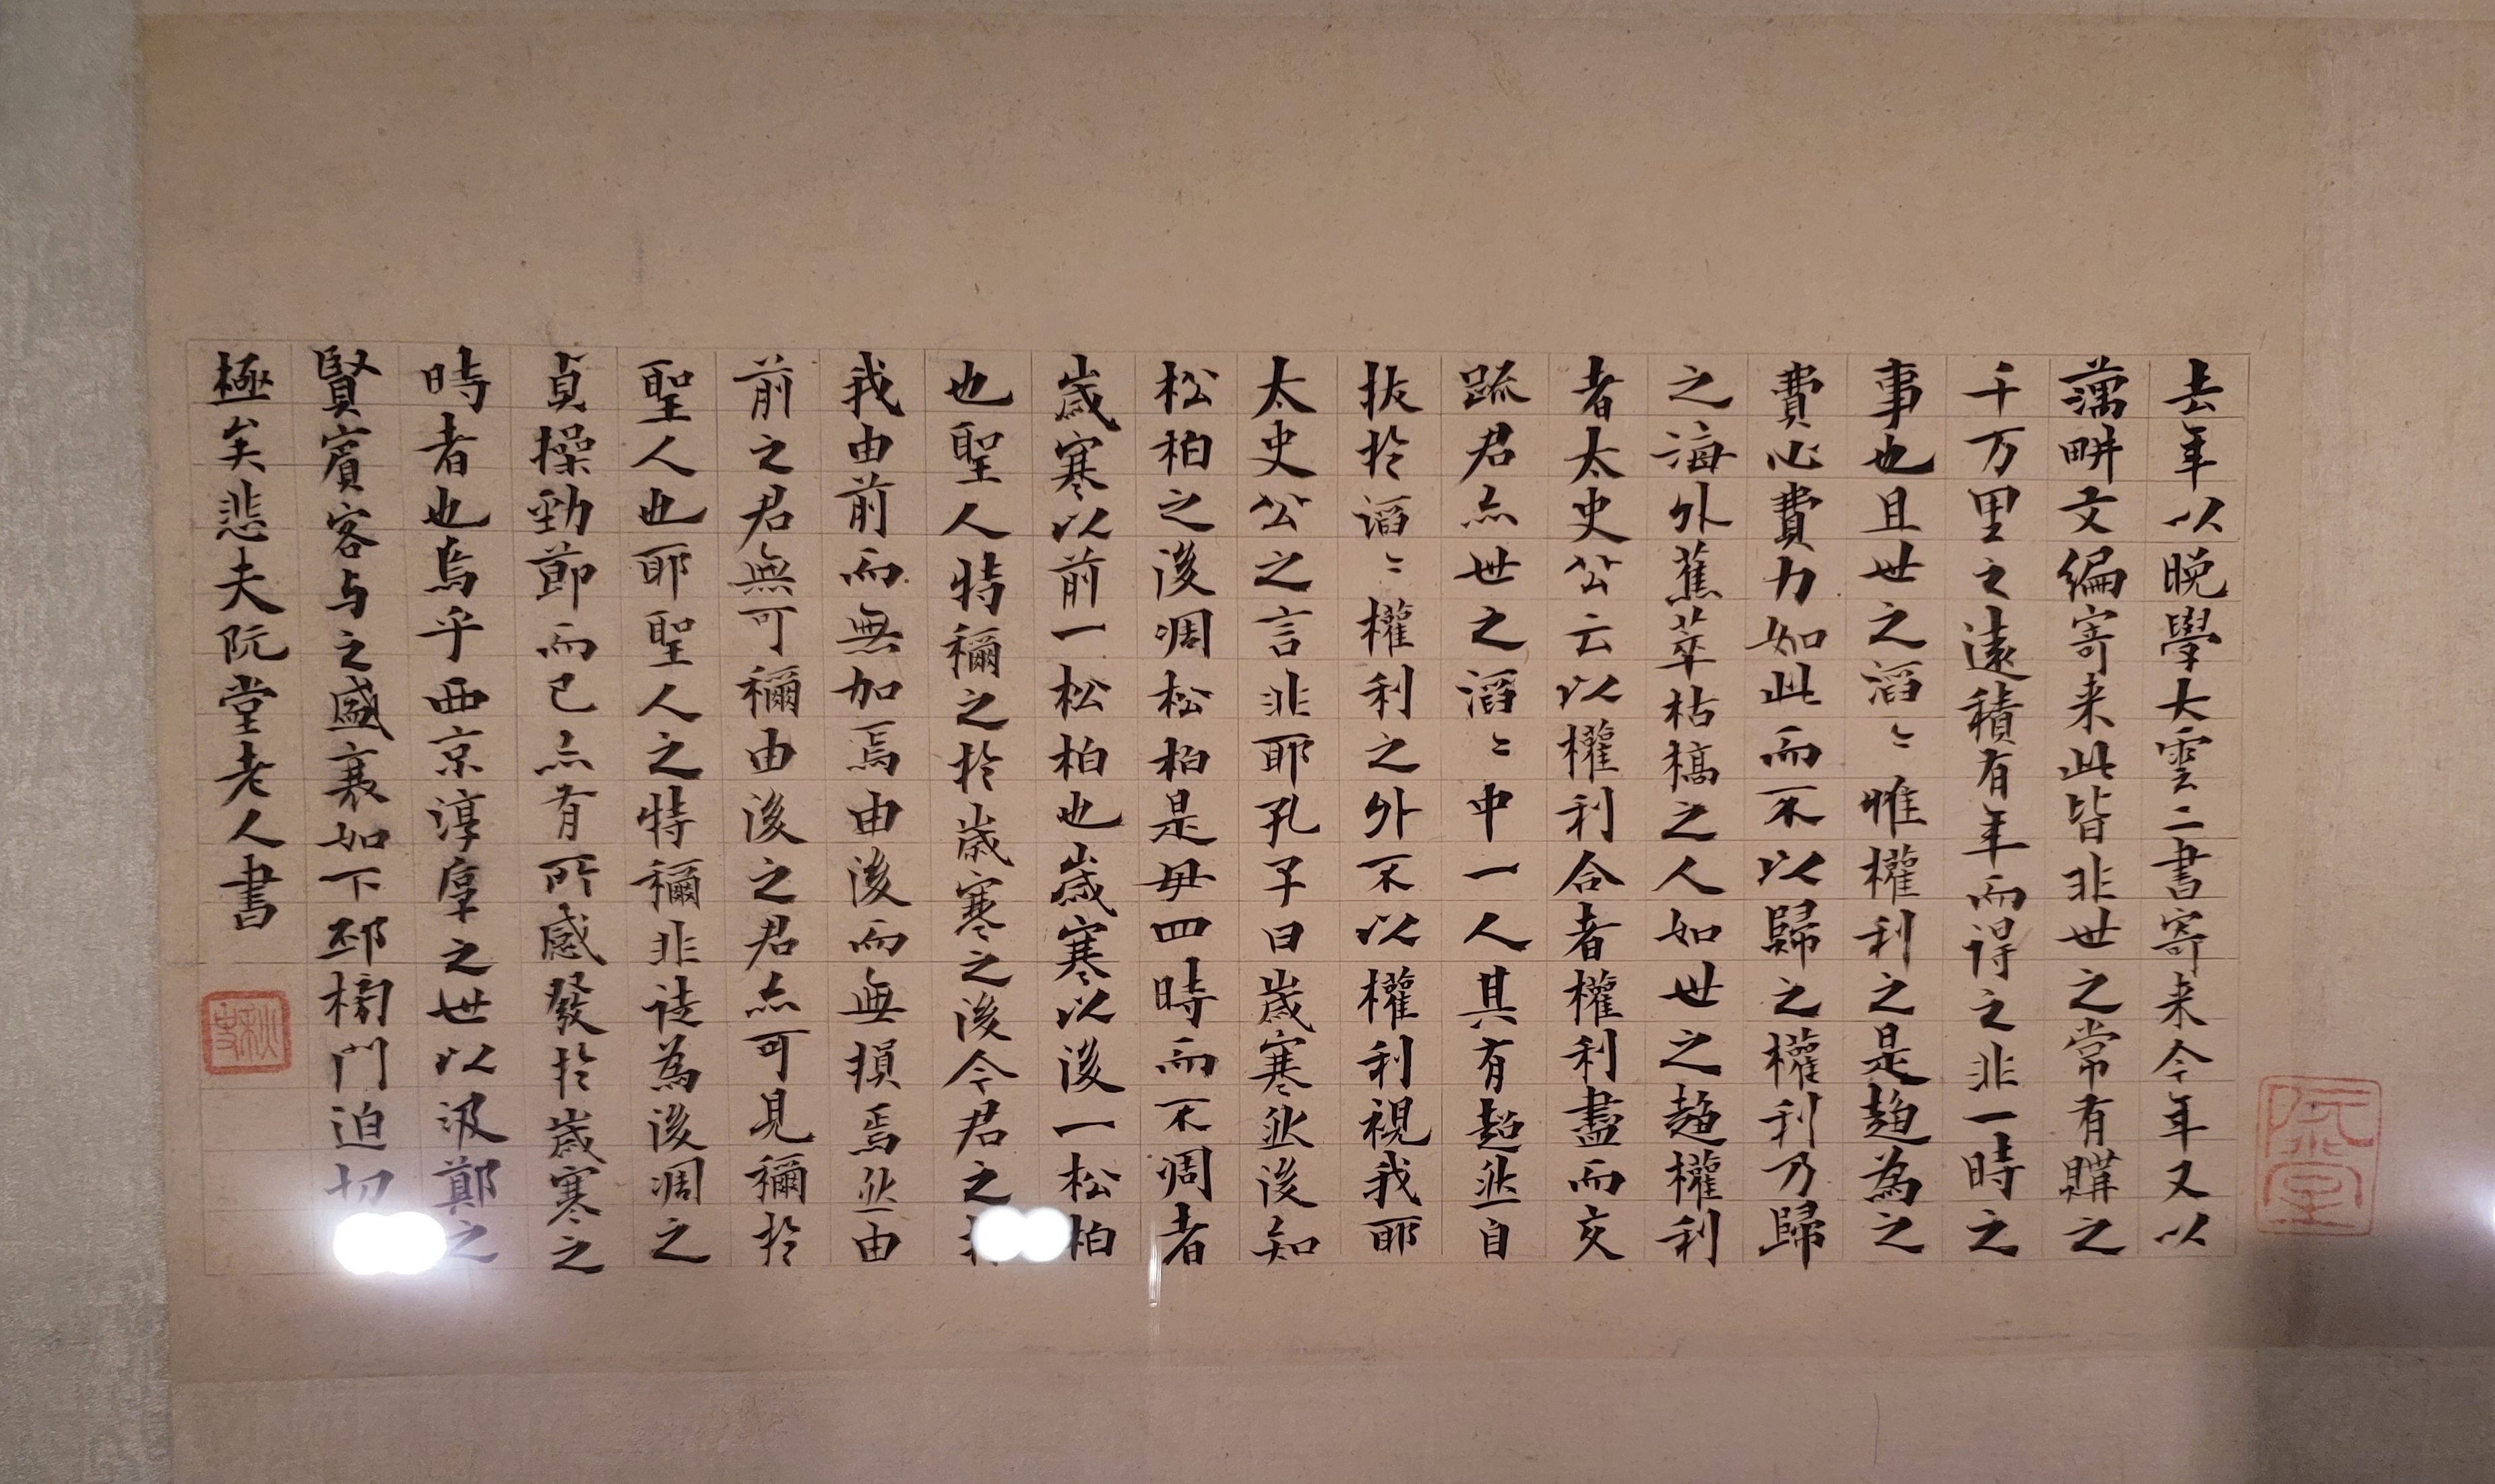 去年以晚學大雲二書寄来今年又以
藕畊文編寄来此皆非世之常有購之
千万里之遠積有年而得之非一時之
事也且世之滔〻惟權利之是趨為之
費心費力如此而不以歸之權利乃歸
之海外蕉萃枯槁之人如世之趨權利
者太史公云以權利合者權利盡而交
踈君亦世之滔〻中一人其有超然自
拔扵滔〻權利之外不以權利視我耶
太史公之言非耶孔子曰歲寒然後知
松柏之後凋松柏是毋四時而不凋者
歲寒以前一松柏也歲寒以後一松柏
也聖人特稱之扵歲寒之後今君之
我由前而無加焉由後而無損焉然由
前之君無可稱由後之君亦可見稱扵
聖人也耶聖人之特稱非徒為後凋之
貞操勁節而已亦有所感發扵歲寒之
時者也烏乎西京淳厚之世以汲鄭之
賢賓客与之盛衰如下邳榜門迫切
極矣悲夫阮堂老人書
阮堂
秋史